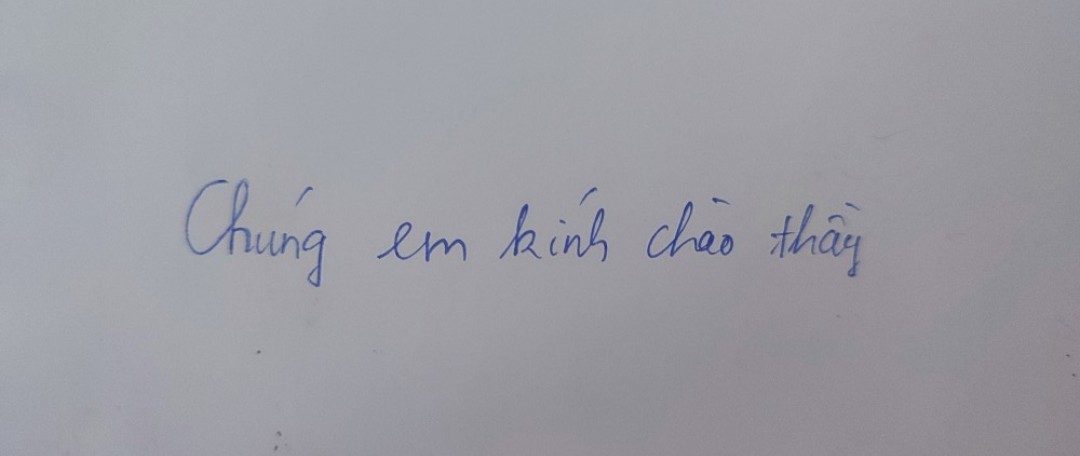 Chúng em kính chào thầy